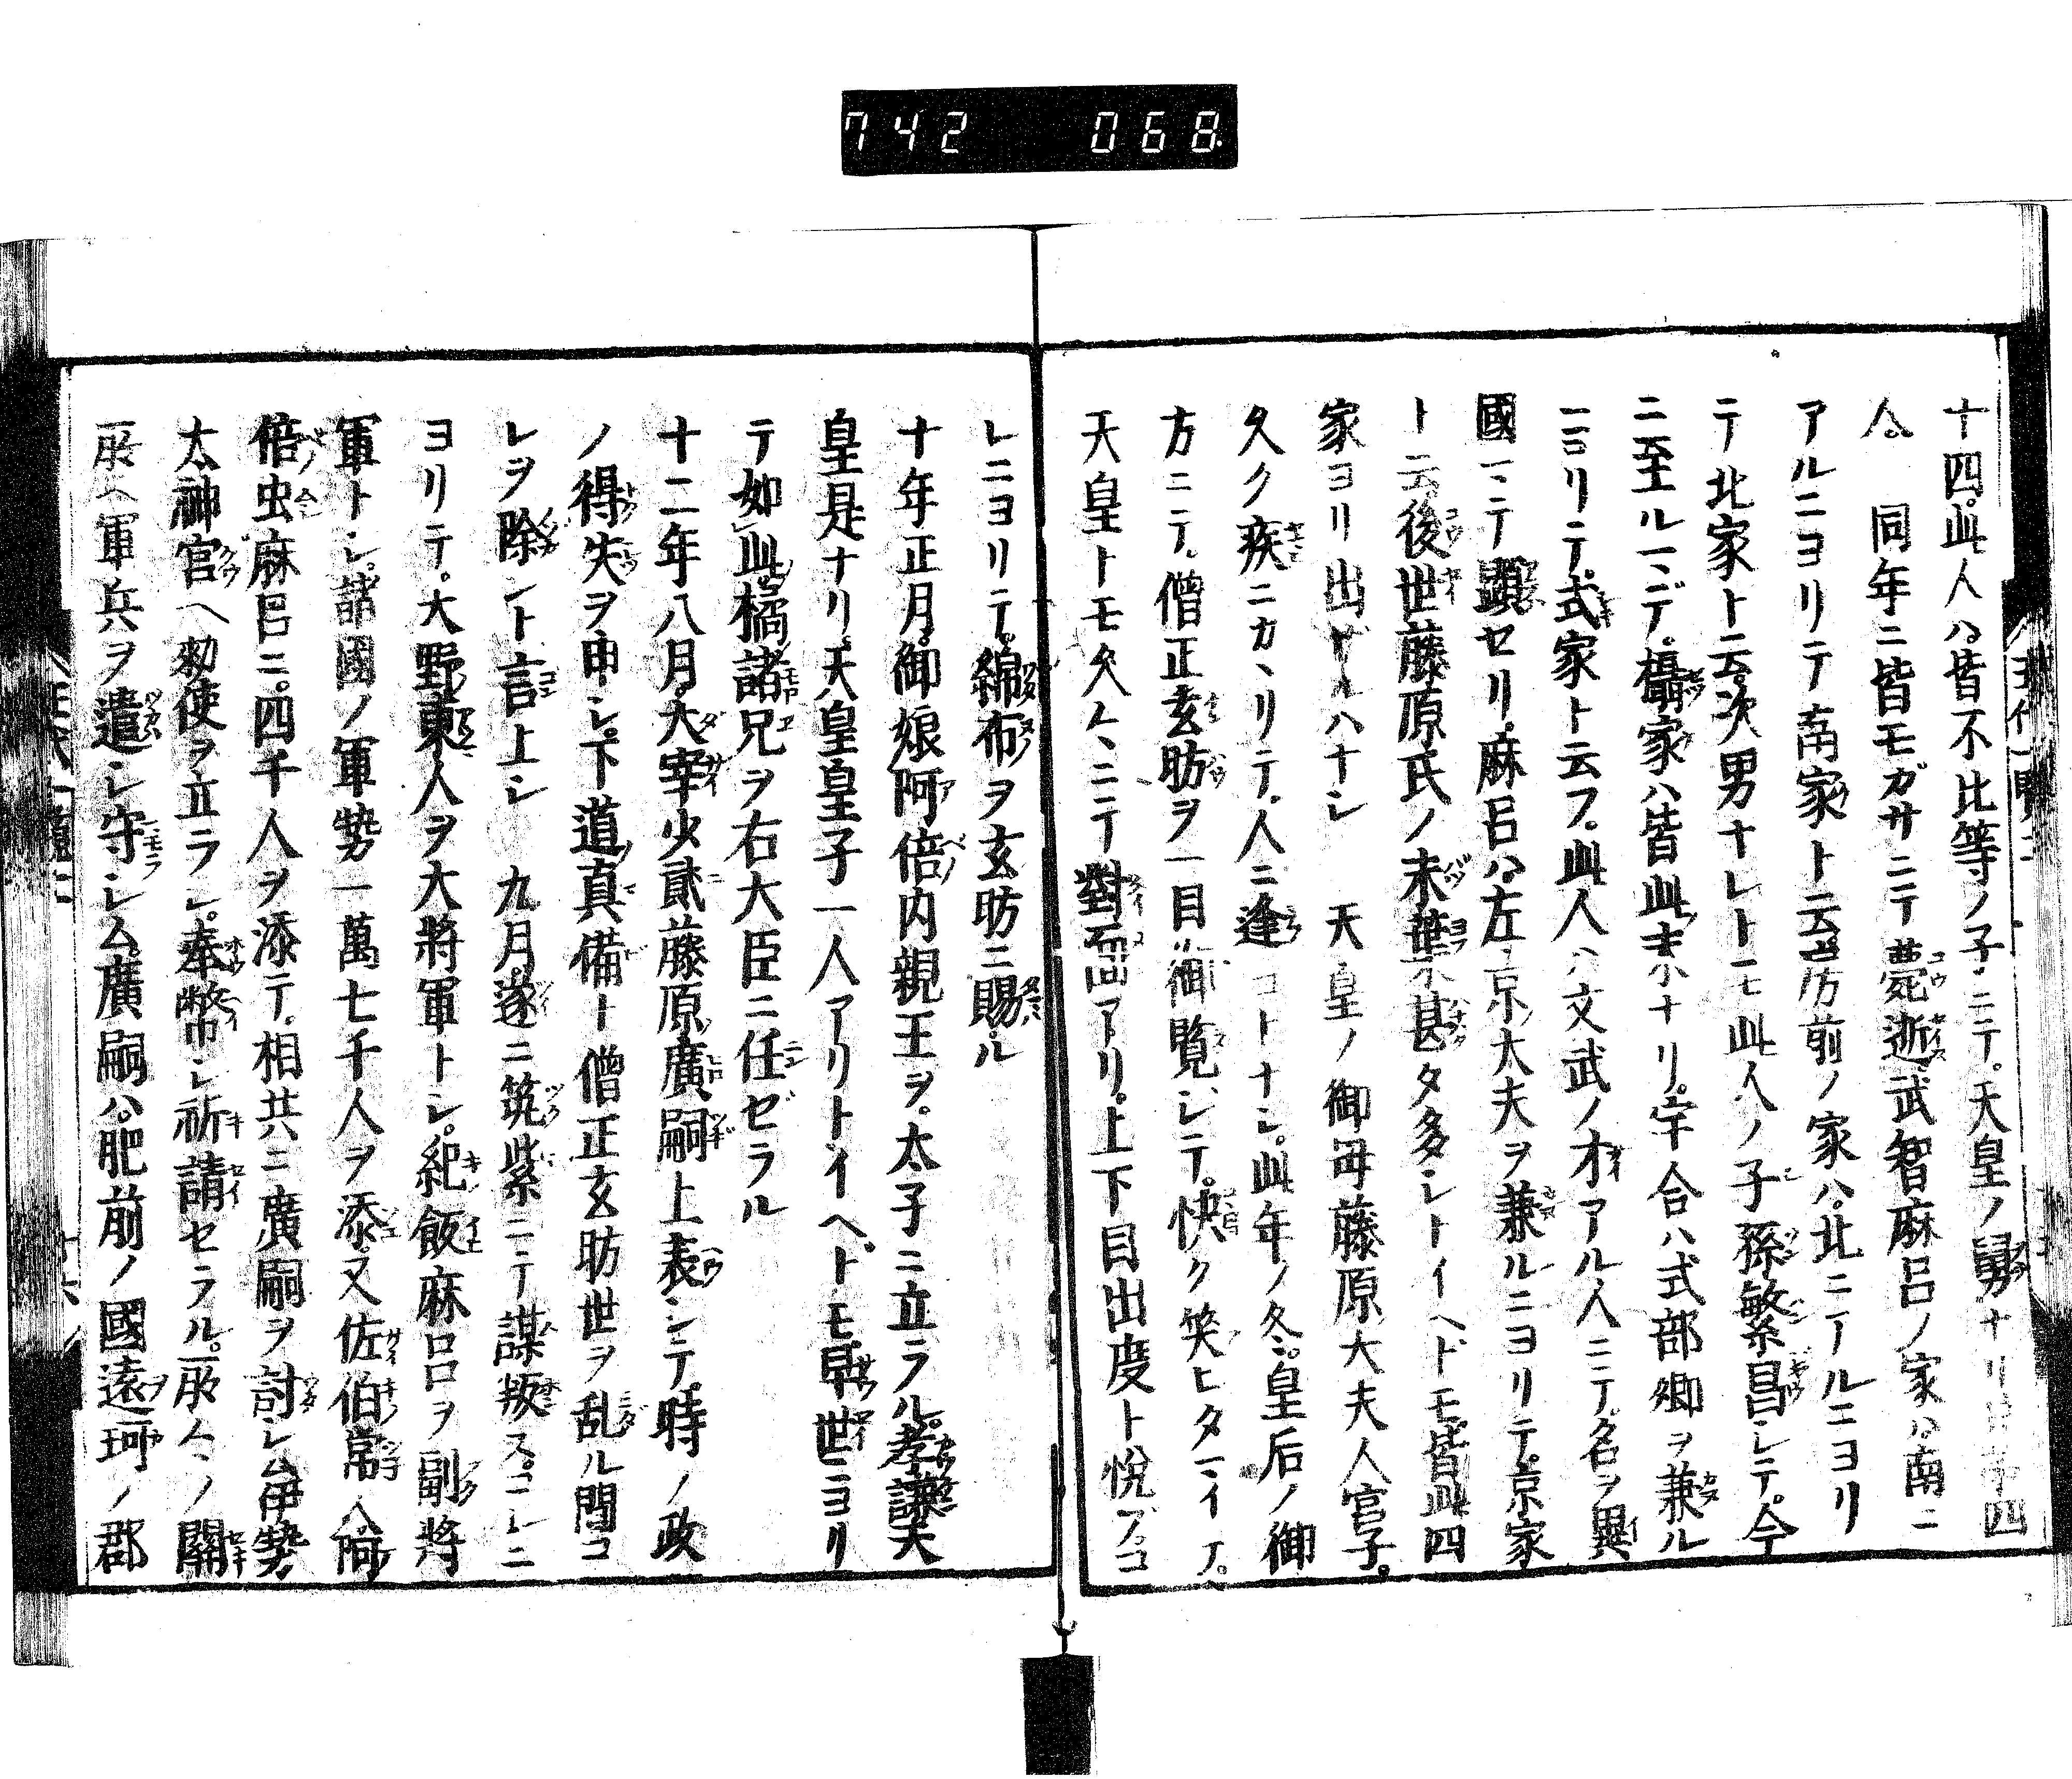 742 068
十四。此人ハ。皆不比等ノ子ニテ。天皇ノ舅ナリ 四
人。 同年ニ皆モガサニテ薨逝。武智麻呂ノ家ハ。南ニ
アルニヨリテ南家ト云。房前ノ家ハ。北ニアルニヨリ
テ北家ト云。次男ナレトモ此人ノ子孫繁昌シテ。今
ニ至ルマデ。攝家ハ皆此末ナリ。宇合ハ式部卿ヲ兼ル
ニヨリテ。式家ト云フ。此人ハ文武ノ才アル人ニテ。名ヲ異
國マテ顕セリ。麻呂ハ。左京大夫ヲ兼ルニヨリテ。京家
ト云。後世藤原氏ノ末葉甚タ多シトイヘドモ。皆此四
家ヨリ出ザルハナシ 天皇ノ御母藤原大夫人宮子。
久ク疾ニカヽリテ。人ニ逢コトナシ。此年ノ冬。皇后ノ御
方ニテ。僧正玄昉ヲ一目御覽シテ。快ク笑ヒタマイフ。
天皇トモ久々ニテ對面アリ。上下目出度ト悅フ。コ
レニヨリテ。綿布ヲ玄昉ニ賜ル
十年正月。御娘阿倍内親王ヲ。太子ニ立ラル。孝謙天
皇是ナリ。天皇皇子一人アリトイヘトモ。早世ニヨリ
テ如此。橘諸兄ヲ右大臣ニ任ゼラル
十二年八月。大宰少貳藤原廣嗣上表シテ。時ノ政
ノ得失ヲ申シ。下道真備ト僧正玄昉世ヲ乱ル間コ
レヲ除ント言上シ 九月。遂ニ筑紫ニテ謀叛ス。コレニ
ヨリテ。大野東人ヲ大將軍トシ。紀飯麻呂ヲ副將
軍トシ。諸國ノ軍勢一萬七千人ヲ添。又佐伯常人阿
倍虫麻呂ニ。四千人ヲ添テ。相共ニ廣嗣ヲ討シム。伊勢
太神宮ヘ勅使ヲ立ラレ。奉幣シ祈請セラル。所々ノ關
所ヘ軍兵ヲ遣シ守シム。廣嗣ハ。肥前ノ國遠珂ノ郡